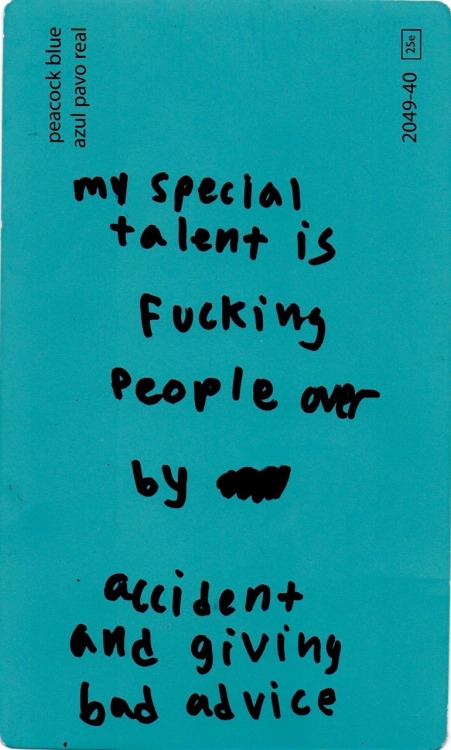 peacock blue
azul pavo real
2049-40 25e
my special
talent is
Fucking
People over
by
accident
and giving
bad advice